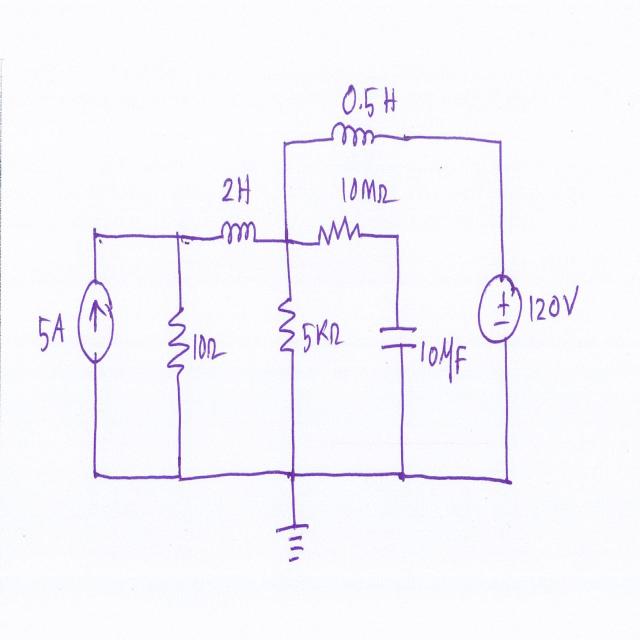 0.5H
2H
10MΩ
5A
10Ω
5KΩ
10μF
120V